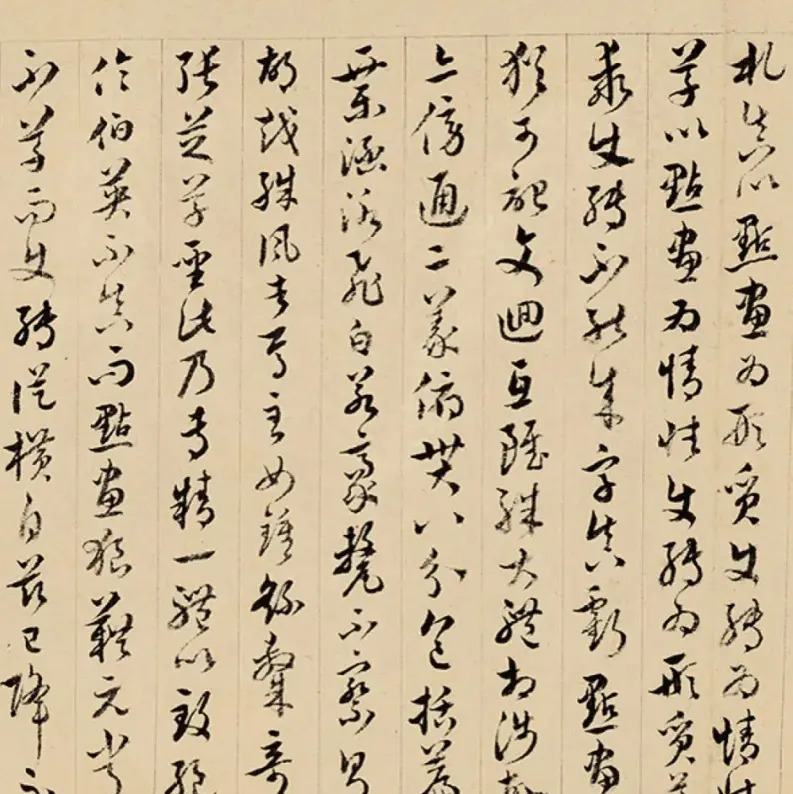 札真以點畫為形質使轉為情性
草以點畫為情性使轉為形質草
乖使轉不能成字真虧點畫
猶可記文迴互雖殊大體相涉故
亦傍通二篆俯貫八分包括篇
章涵泳飛白若豪氂不察則
胡越殊風者焉至如鍾繇隸奇
張芝草聖此乃專精一體以致絕
倫伯英不真而點畫狼藉元常
不草而使轉從橫自茲已降不